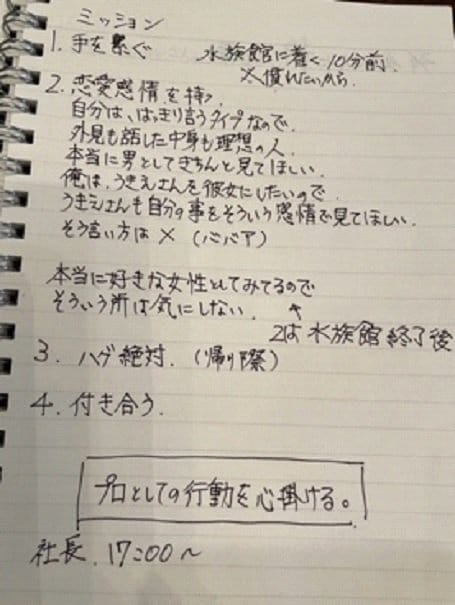 ミッション
1. 手を繋ぐ 水族館に着く10分前.
※慣れたいから.
2. 恋愛感情を持つ
自分は、はっきり言うタイプなので.
外見も話した中身も理想の人.
本当に男としてきちんと見てほしい.
俺は、うきえさんを彼女にしたいので.
うきえさんも自分の事をそういう感情で見てほしい.
そう言い方は × (ババア)
本当に好きな女性としてみてるので
そういう所は気にしない.
2は 水族館 終了後
3. ハグ絶対. (帰り際)
4. 付き合う.
プロとしての行動を心掛ける。
社長. 17:00〜